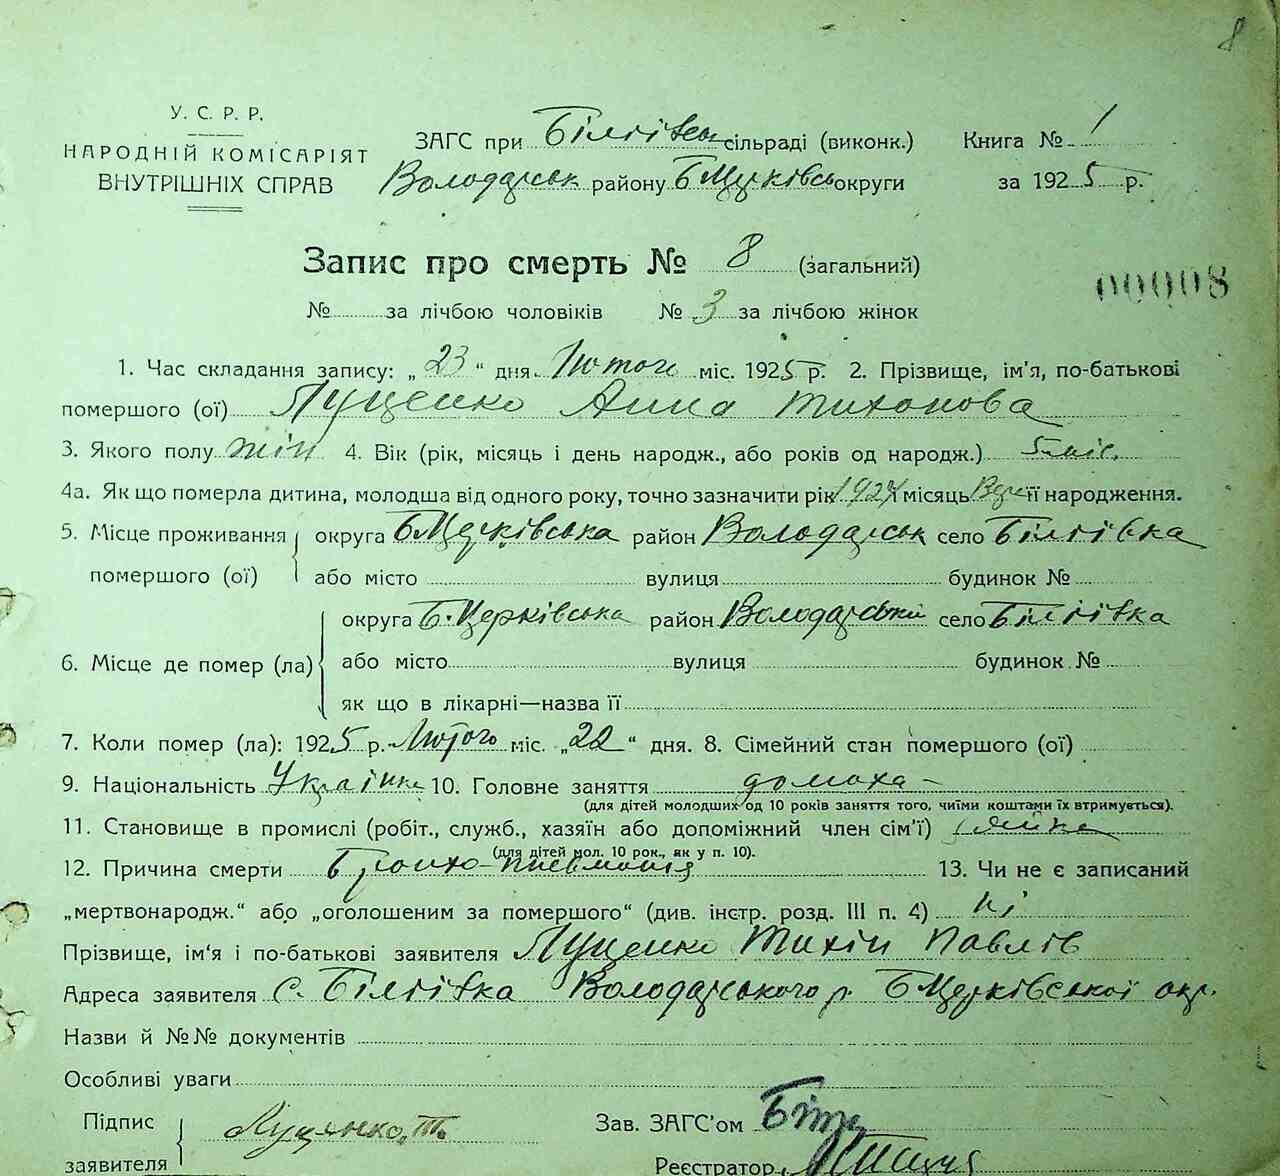 8
У. С. Р. Р.
НАРОДНІЙ КОМІСАРІЯТ
ВНУТРІШНІХ СПРАВ
ЗАГС при Біліївськ сільраді (виконк.) Книга № 1
Володарськ району Б Церківськ округи за 1925 р.
Запис про смерть № 8 (загальний)
00008
№ за лічбою чоловіків № 3 за лічбою жінок
1. Час складання запису: „23“ дня Лютого міс. 1925 р. 2. Прізвище, ім'я, по-батькові
помершого (ої) Луценко Анна Тихонова
3. Якого полу жін 4. Вік (рік, місяць і день народж., або років од народж.) 5 міс.
4а. Як що померла дитина, молодша від одного року, точно зазначити рік 1924 місяць її народження.
5. Місце проживання округа Б Церківська район Володарськ село Біліївка
помершого (ої) або місто вулиця будинок №
округа Б. Церківська район Володарський село Біліївка
6. Місце де помер (ла) або місто вулиця будинок №
як що в лікарні—назва її
7. Коли помер (ла): 1925 р. Лютого міс. „22“ дня. 8. Сімейний стан помершого (ої)
9. Національність Українка 10. Головне заняття домаха
(для дітей молодших од 10 років заняття того, чиїми коштами їх втримується).
11. Становище в промислі (робіт., служб., хазяїн або допоміжний член сім'ї)
(для дітей мол. 10 рок., як у п. 10).
12. Причина смерти Бронхо-пневмонія 13. Чи не є записаний
„мертвонародж.“ або „оголошеним за помершого“ (див. інстр. розд. III п. 4) ні
Прізвище, ім'я і по-батькові заявителя Луценко Тихін Павлів
Адреса заявителя с. Біліївка Володарського р. Б Церківської окр.
Назви й №№ документів
Особливі уваги
Підпис
заявителя Луценко. Т.
Зав. ЗАГС'ом
Реєстратор